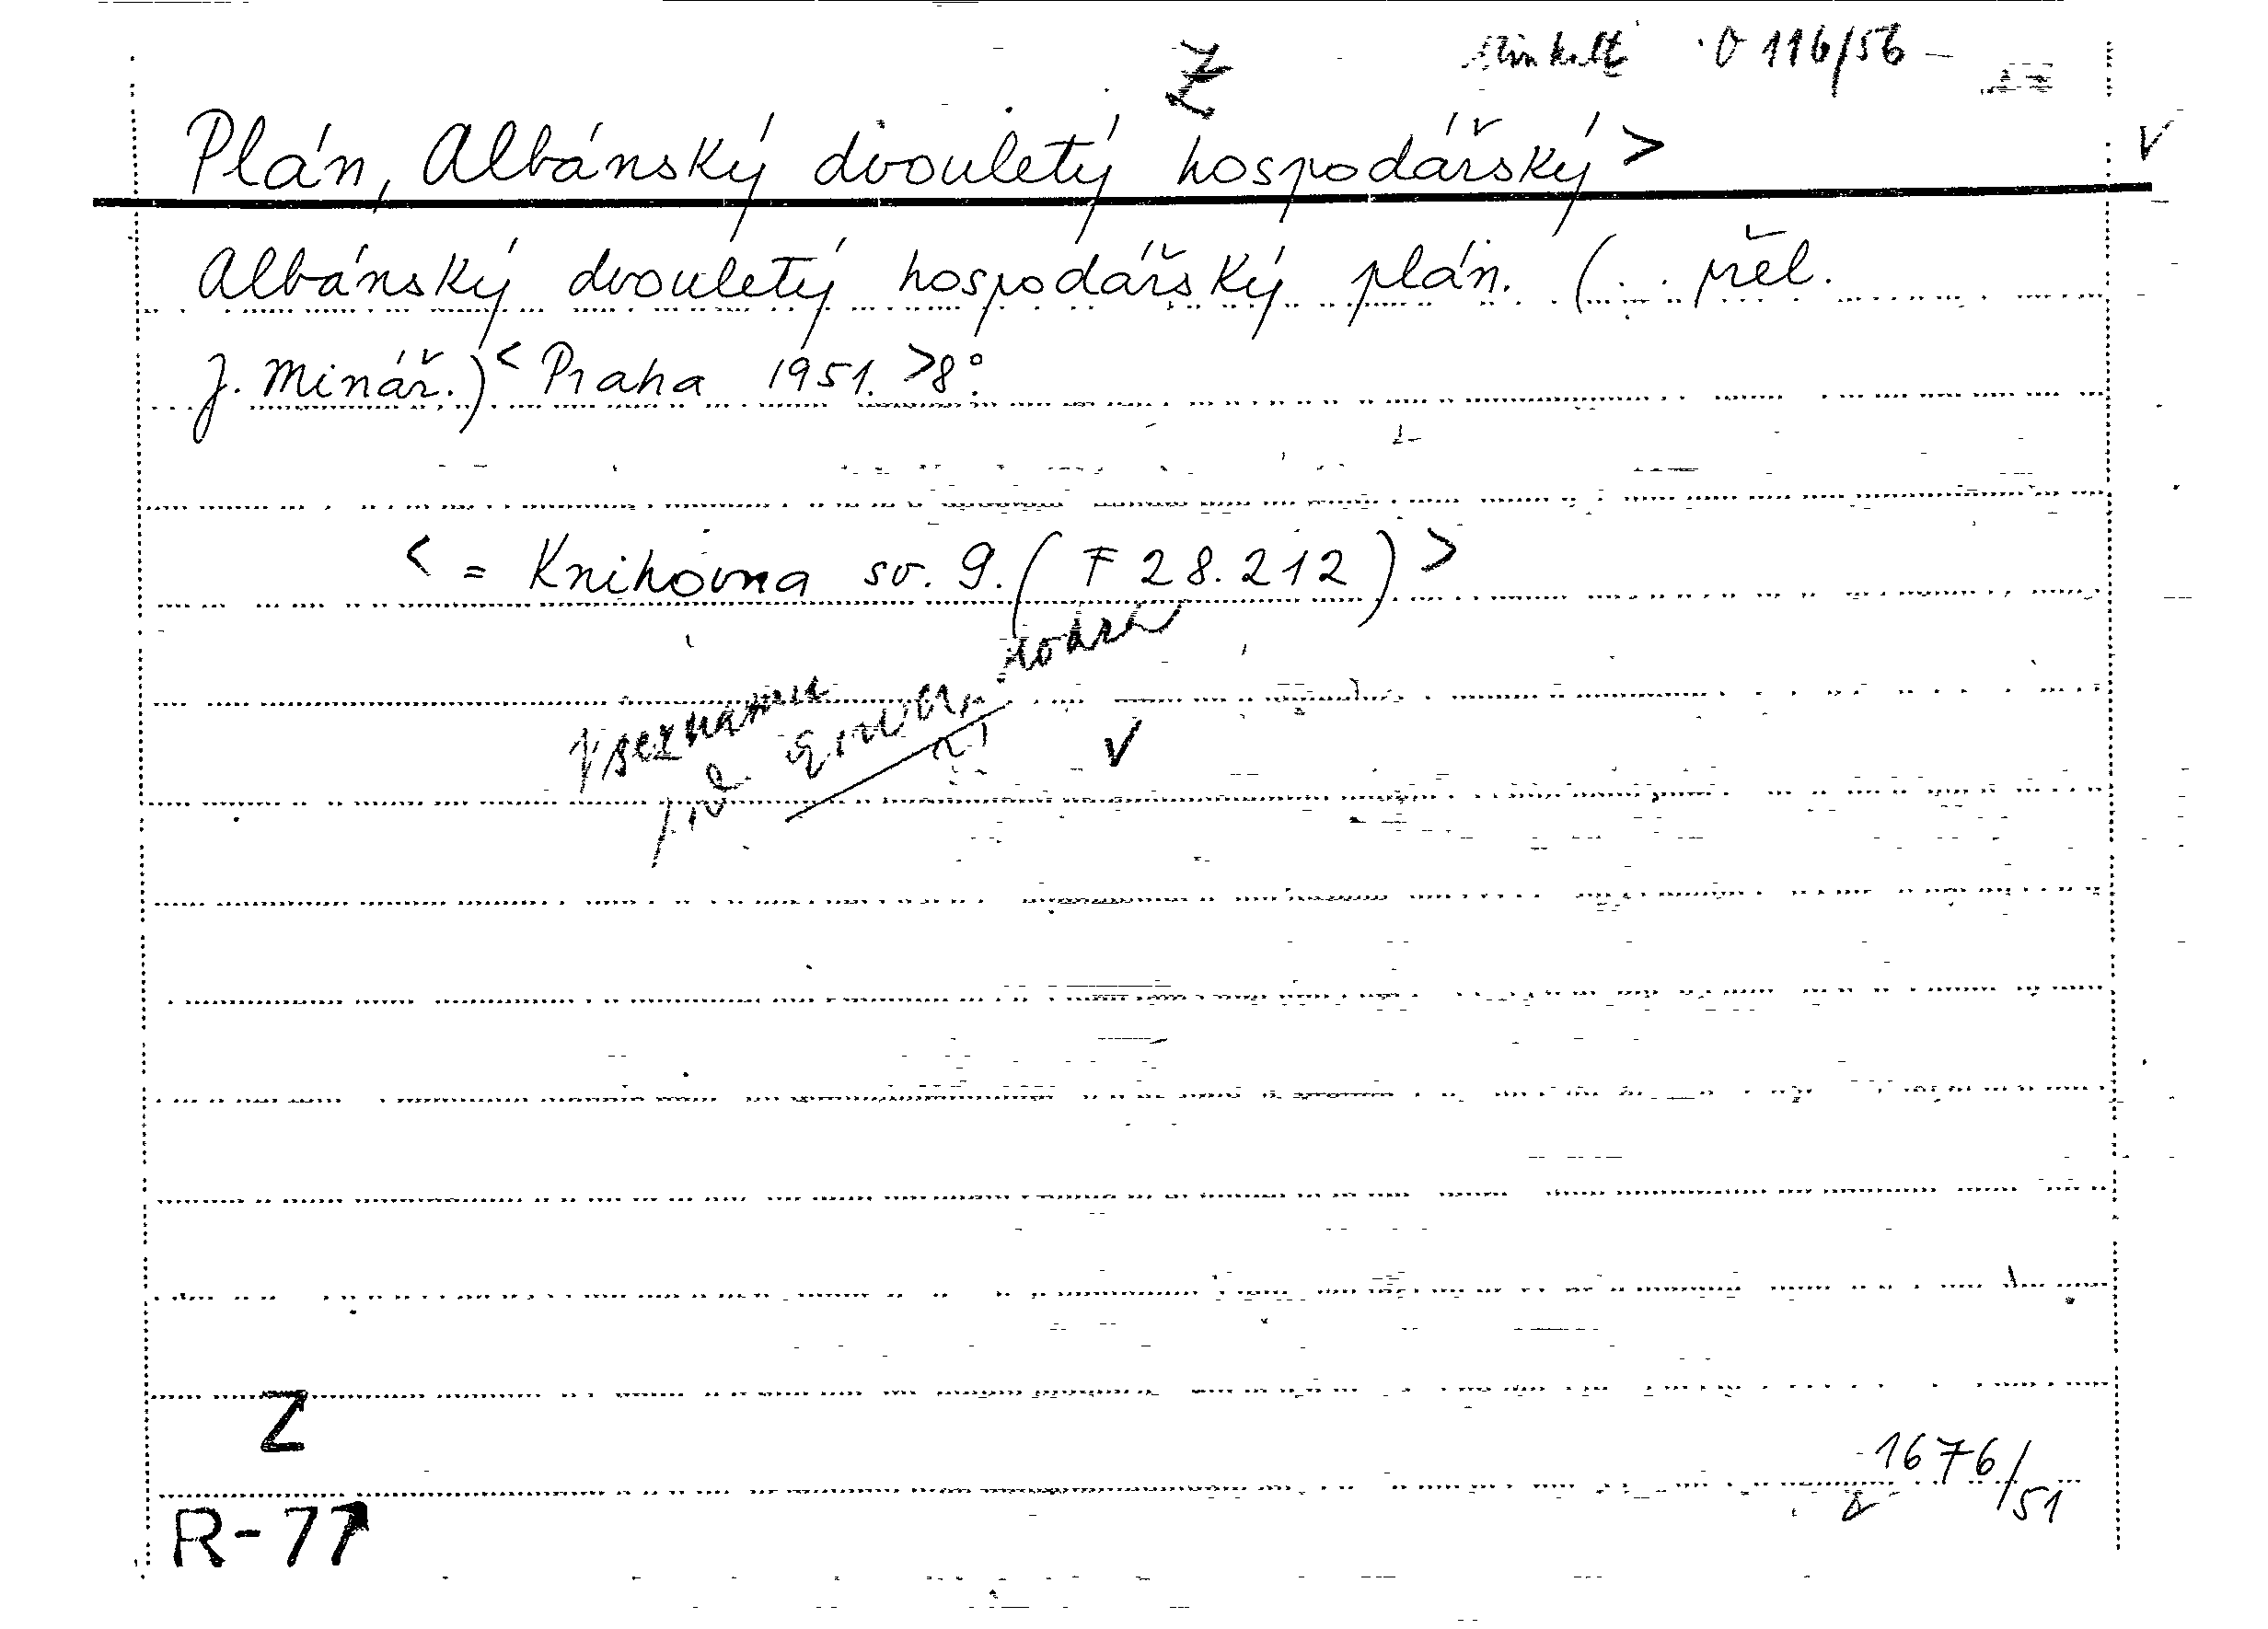 Z
O 116/56
Plán, Albánský dvouletý hospodářský > V
Albánský dvouletý hospodářský plán. (.. přel.
J. Minář.) < Praha 1951. > 8°.
< = Knihovna sv. 9. (F 28.212) >
V seznamu
pod
V
Z
1676/51
R-77